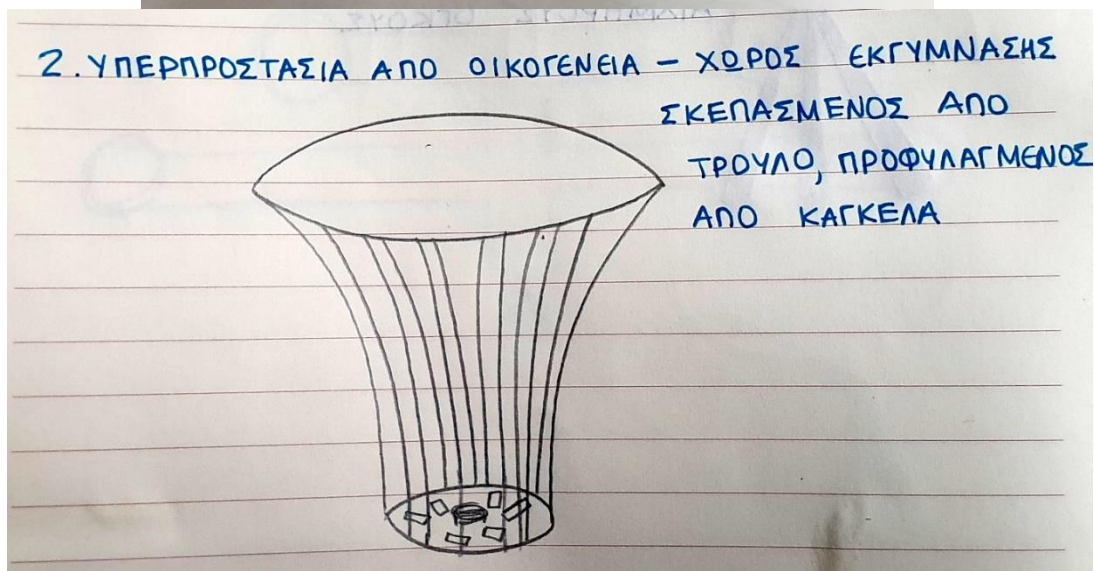 2. ΥΠΕΡΠΡΟΣΤΑΣΙΑ ΑΠΟ ΟΙΚΟΓΕΝΕΙΑ – ΧΩΡΟΣ ΕΚΓΥΜΝΑΣΗΣ
ΣΚΕΠΑΣΜΕΝΟΣ ΑΠΟ
ΤΡΟΥΛΟ, ΠΡΟΦΥΛΑΓΜΕΝΟΣ
ΑΠΟ ΚΑΓΚΕΛΑ